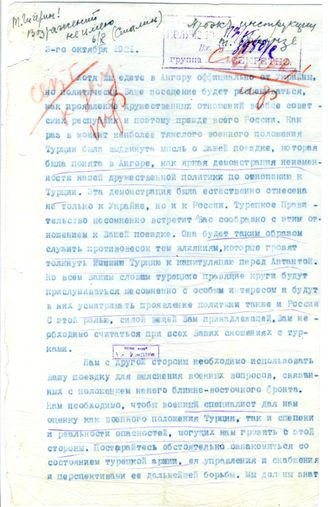 Возражений
не имею
(Сталин)
Проект инструкции
т. Фрунзе
3-го октября 1921.
Хотя Вы едете в Ангору официально от Украины,
но политически Ваше поседение будет
как проявление дружественных отношений вообще совет-
ских республик и поэтому прежде всего России. Как
раз в момент наиболее тяжелого военного положения
Турции была выдвинута мысль о Вашей поездке, которая
была понята в Ангоре, как яркая демонстрация неизмен-
ности нашей дружественной политики по отношению к
Турции. Эта демонстрация была естественно отнесена
не только к Украйне, но и к России. Турецкое Прави-
тельство несомненно встретит Вас сообразно с этим от-
ношением к Вашей поездке. Она будет таким образом
служить противовесом тем влияниям, которые грозят
толкнуть Турцию к капитуляции перед Антантой.
Ко всем Вашим словам турецкие правящие круги будут
прислушиваться несомненно с особым интересом и будут
в них усматривать проявление политики также и России
С этой ролью, силой вещей Вам принадлежащей, Вам не-
обходимо считаться при всех Ваших сношениях с тур-
ками.
Нам с другой стороны необходимо использовать
Вашу поездку для выяснения военных вопросов, связан-
ных с положением нашего ближне-восточного фронта.
Нам необходимо, чтобы военный специалист дал нам
оценку как военного положения Турции, так и степени
и реальности опасностей, могущих нам грозить с этой
стороны. Постарайтесь обстоятельно ознакомиться со
состоянием турецкой армии, ея управления и снабжения
и перспективами ее дальнейшей борьбы. Мы должны знать